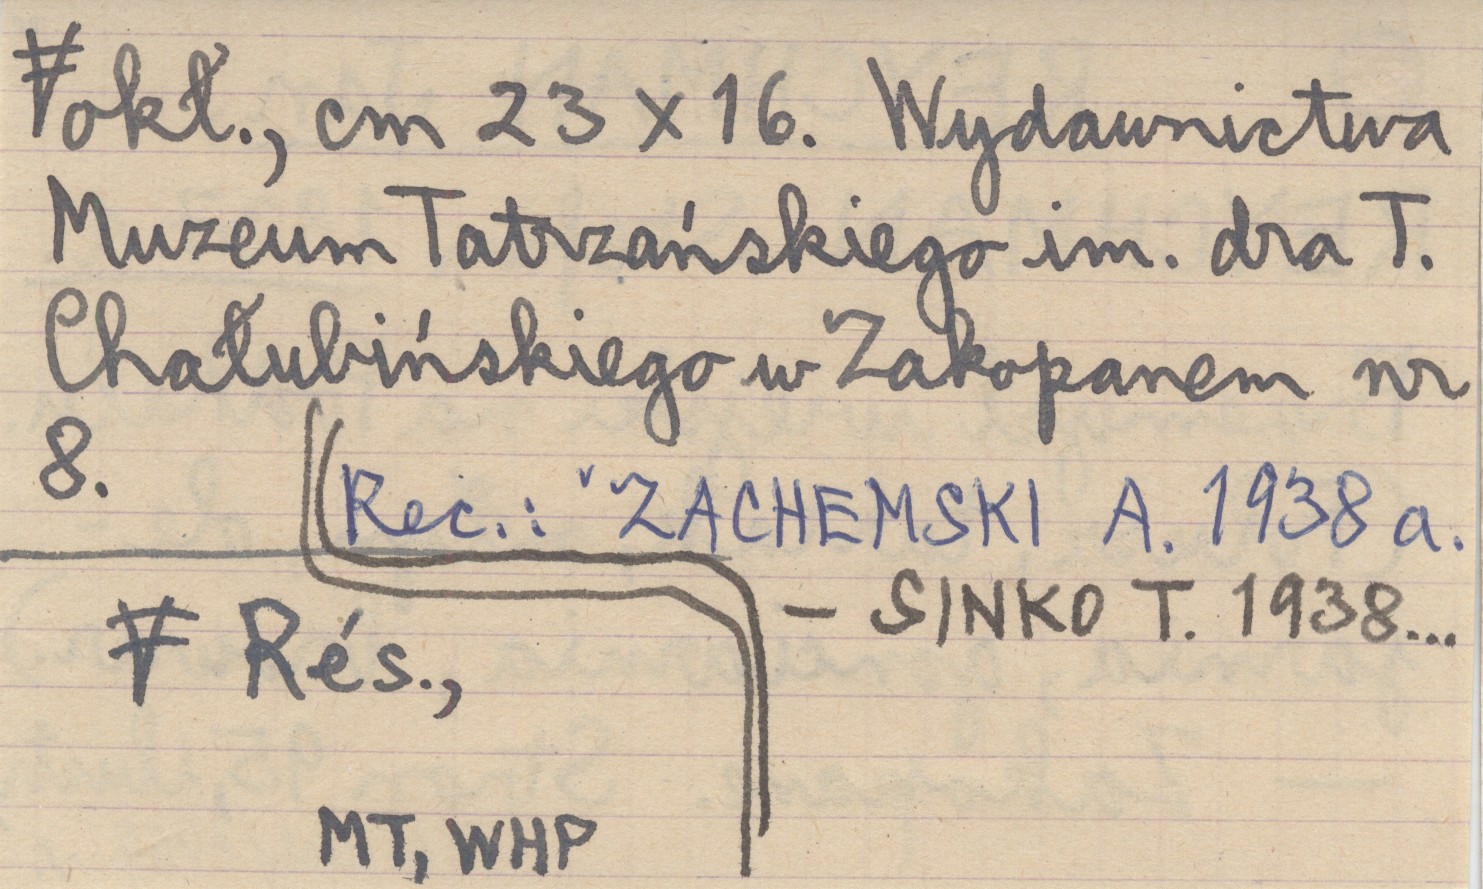 okł., cm 23 x 16. Wydawnictwa
Muzeum Tatrzańskiego im. dra T.
Chałubińskiego w Zakopanem nr
8.
Rec.: ZACHEMSKI A. 1938 a.
– SINKO T. 1938...
Rés.,
MT, WHP